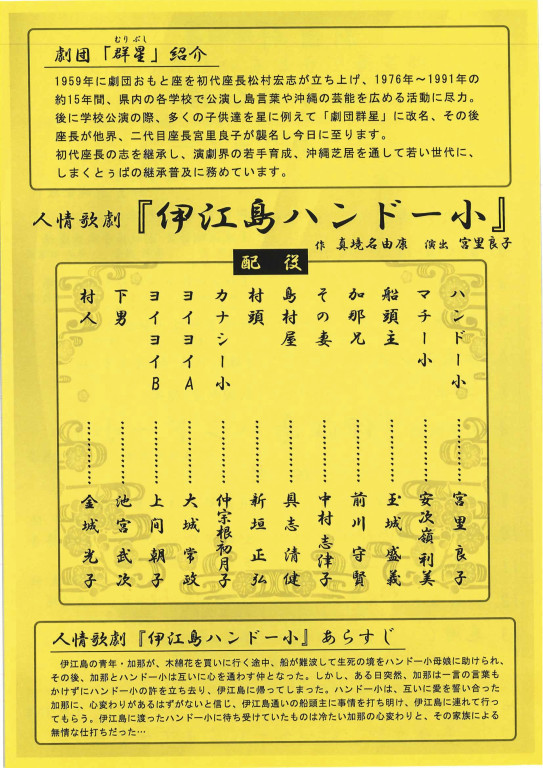 むりぶし
劇団「群星」紹介
1959年に劇団おもと座を初代座長松村宏志が立ち上げ、1976年~1991年の
約15年間、県内の各学校で公演し島言葉や沖縄の芸能を広める活動に尽力。
後に学校公演の際、多くの子供達を星に例えて「劇団群星」に改名、その後
座長が他界、二代目座長宮里良子が襲名し今日に至ります。
初代座長の志を継承し、演劇界の若手育成、沖縄芝居を通して若い世代に、
しまくとぅばの継承普及に務めています。
人情歌劇『伊江島ハンドー小』
作 真境名由康 演出 宮里良子
配役
ハンドー小………………宮里良子
マチー小………………安次嶺利美
船頭主………………玉城盛義
加那兄………………前川守賢
その妻………………中村志津子
島村屋………………具志清健
村頭………………新垣正弘
カナシー小………………仲宗根初月子
ヨイヨイA………………大城常政
ヨイヨイB………………上間朝子
下男………………池宮武次
村人………………金城光子
人情歌劇『伊江島ハンドー小』あらすじ
伊江島の青年・加那が、木綿花を買いに行く途中、船が難波して生死の境をハンドー小母娘に助けられ、
その後、加那とハンドー小は互いに心を通わす仲となった。しかし、ある日突然、加那は一言の言葉も
かけずにハンドー小の許を立ち去り、伊江島に帰ってしまった。ハンドー小は、互いに愛を誓い合った
加那に、心変わりがあるはずがないと信じ、伊江島通いの船頭主に事情を打ち明け、伊江島に連れて行っ
てもらう。伊江島に渡ったハンドー小に待ち受けていたものは冷たい加那の心変わりと、その家族による
無情な仕打ちだった…